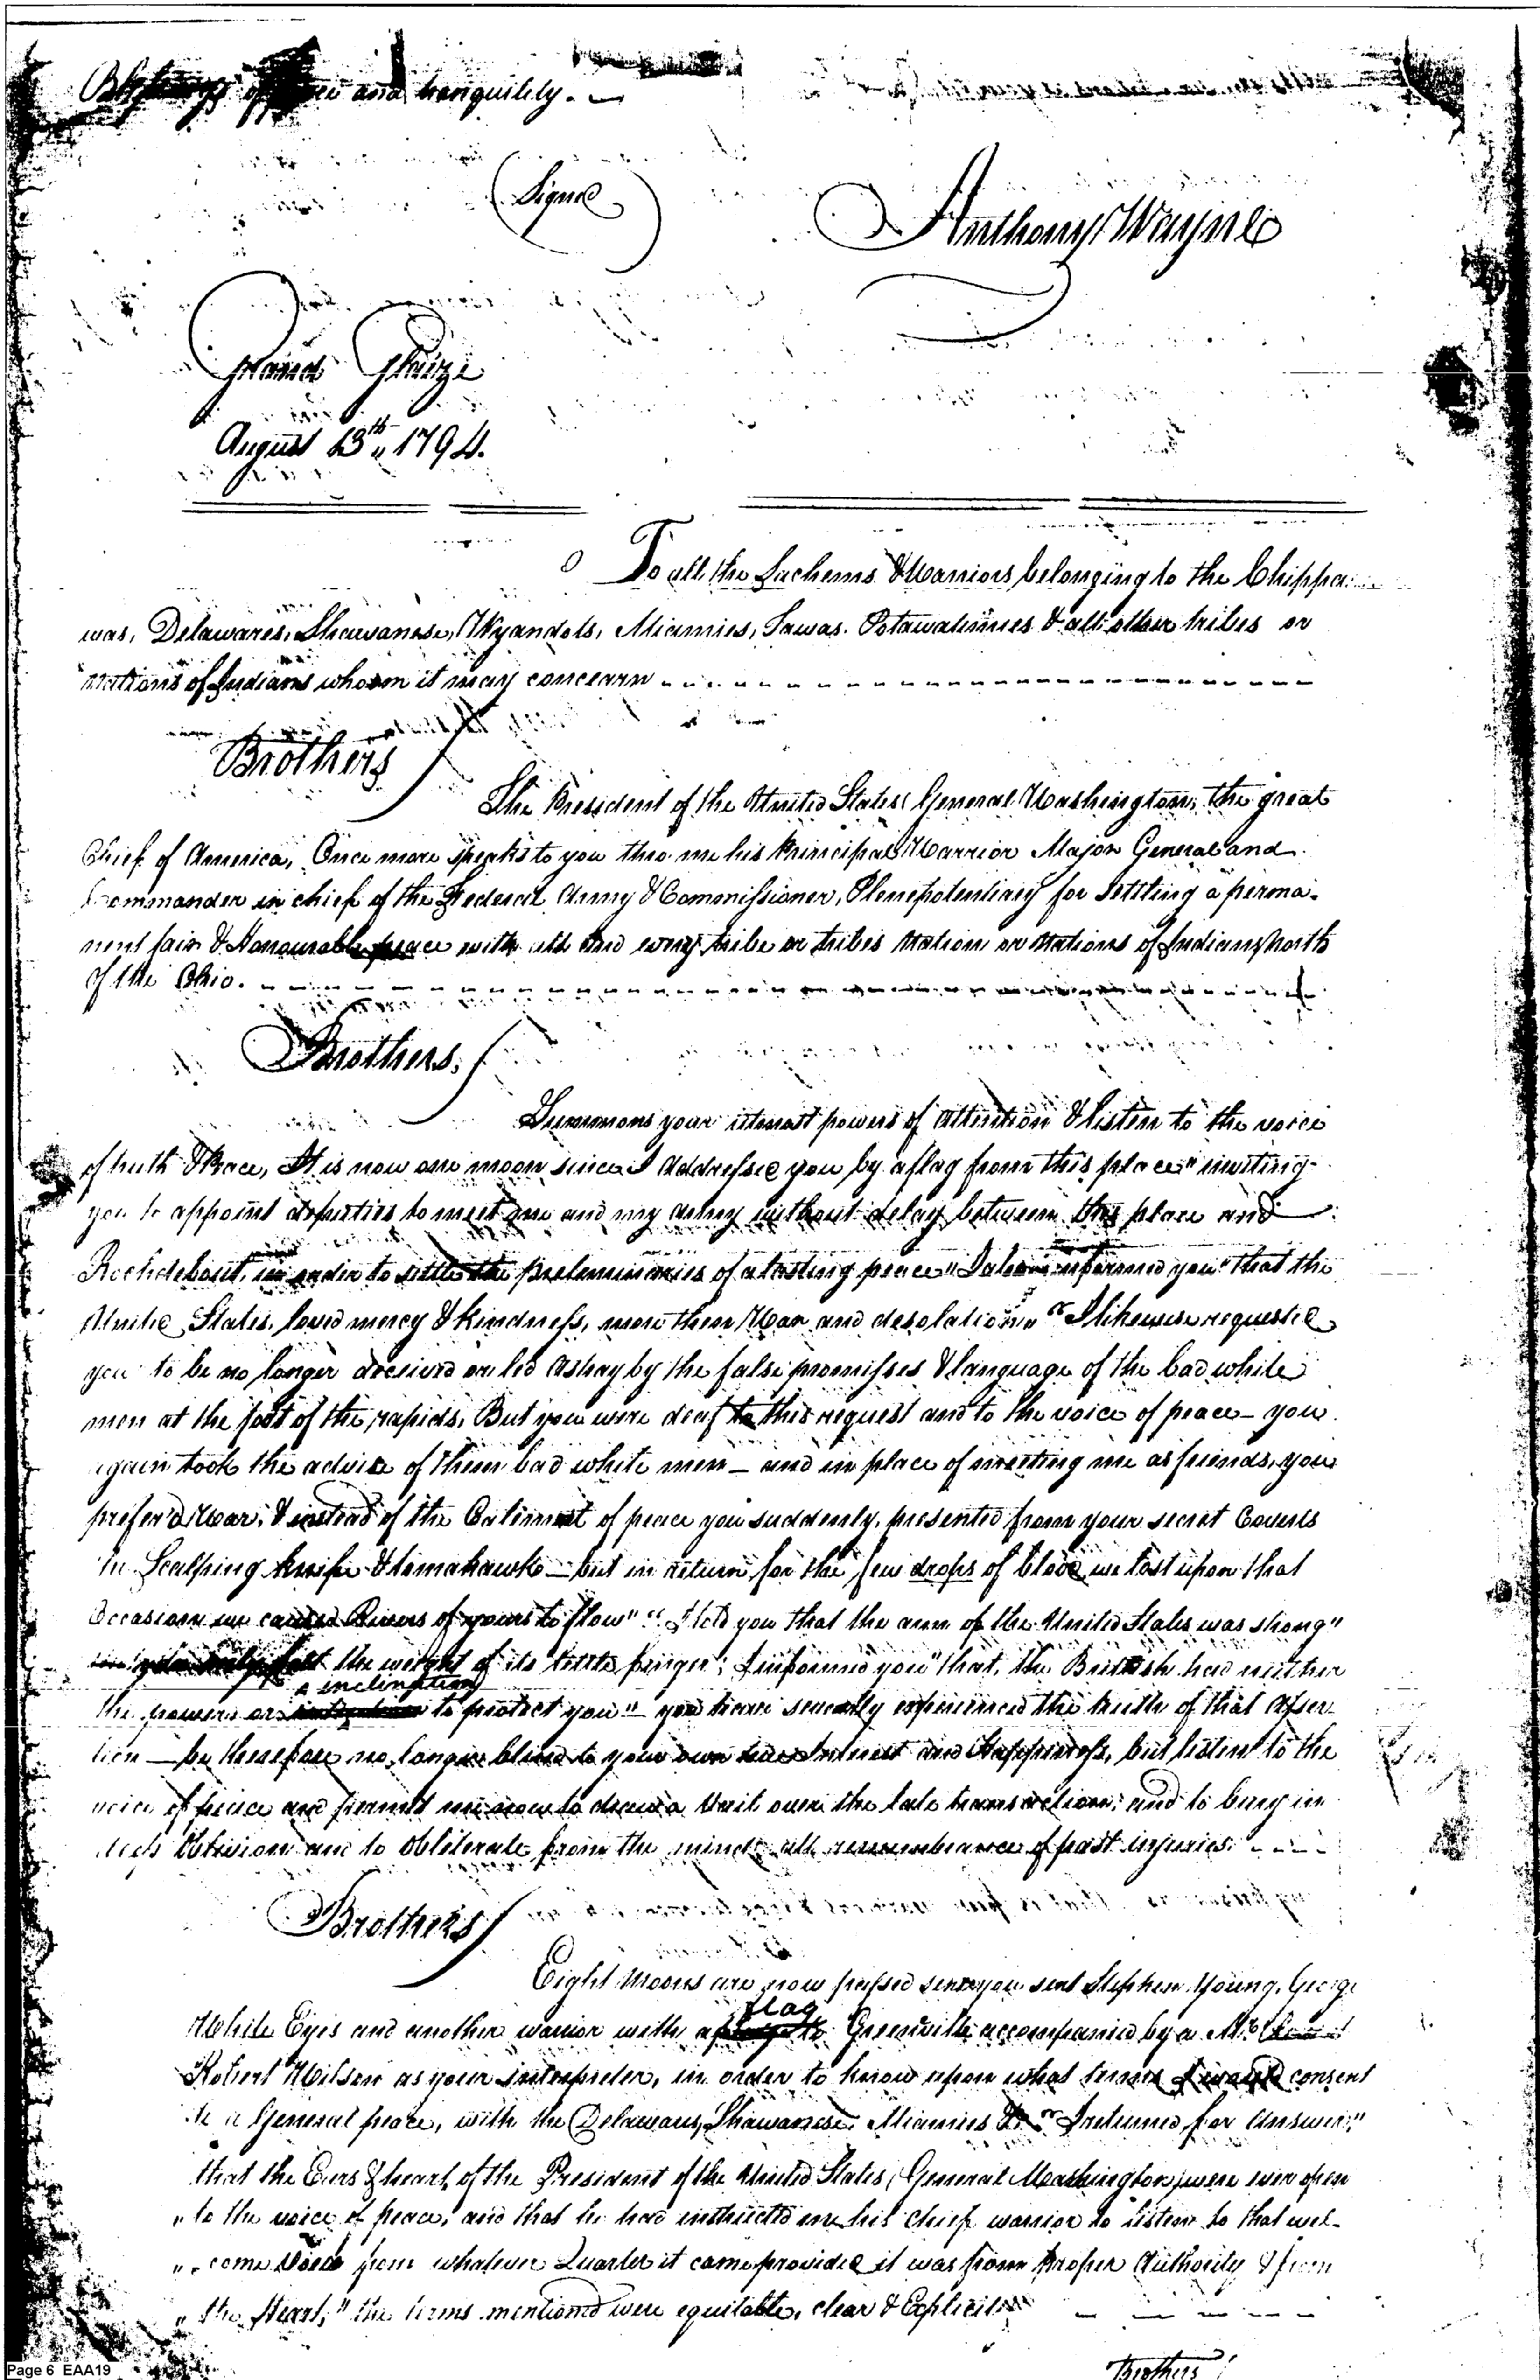 Blessings of peace and tranquility. —
(Signed)
Anthony Wayne
Grand Glaize
August 13th,, 1794.
To all the Sachems & Warriors belonging to the Chippa-
was, Delawares, Shawanese, Wyandots, Miamies, Tawas. Potawatimies & all other tribes or
nations of Indians whom it may concearn
Brothers
The President of the United States General Washington, the great
Chief of America, Once more speaks to you thro. me his Principal Warrior Major General and
Commander in chief of the Federal Army & Commissioner, Plenepotentiary for settling a perma-
nent fair & Honourable peace with all and every tribe or tribes Nation or Nations of Indians North
of the Ohio.
Brothers,
Summons your utmost powers of attention & listen to the voice
of truth & Peace, It is now one moon since I addressed you by a flag from this place "inviting
you to appoint deputies to meet me and my army without delay between this place and
Rochdebout, in order to settle the Preleminaries of a lasting peace" I also informed you "that the
United States, loved mercy & kindness, more then War and desolation" "I likewise requested
you to be no longer deceived or led astray by the false promisses & language of the bad white
men at the foot of the rapids, But you were deaf to this request and to the voice of peace – you
again took the advise of them bad white men – and in place of meeting me as friends, you
prefer'd War, & instead of the Calimet of peace you suddenly, presented from your secret Coverts
the Scalping knife & tomahawk – but in return for the few drops of blood we lost upon that
Occasion we caused Rivers of yours to flow" "I told you that the arm of the United States was strong"
you only felt the weight of its little finger; I informed you "that, the British had neither
inclination
the powers or to protect you" – you have severely experienced the truth of that Asser-
tion – be therefore no longer blind to your own true Interest and Happiness, but listen to the
voice of peace and permit me now to draw a Vail over the late transaction; and to bury in
deep Oblivion and to obliterate from the mind all remembrance of past injuries.
Brothers
Eight Moons are now passed since you sent Stephen Young, George
flag
White Eyes and another warrior with a Greenville accompanied by a Mr.
Robert Wilson as your interpreter, in order to know upon what terms I would consent
to a General peace, with the Delawars, Shawanese, Miamies &c. "I returned for Answer,"
that the Ears & heart of the President of the United States, (General Washington) were ever open
" to the voice of peace, and that he had instructed me his chief warrior to listen to that wel-
" come Voice from whatever Quarter it came provided it was from proper Authority & from
" the Heart;" the terms mentioned were equitable, clear & Explicit
Brothers
Page 6 EAA19